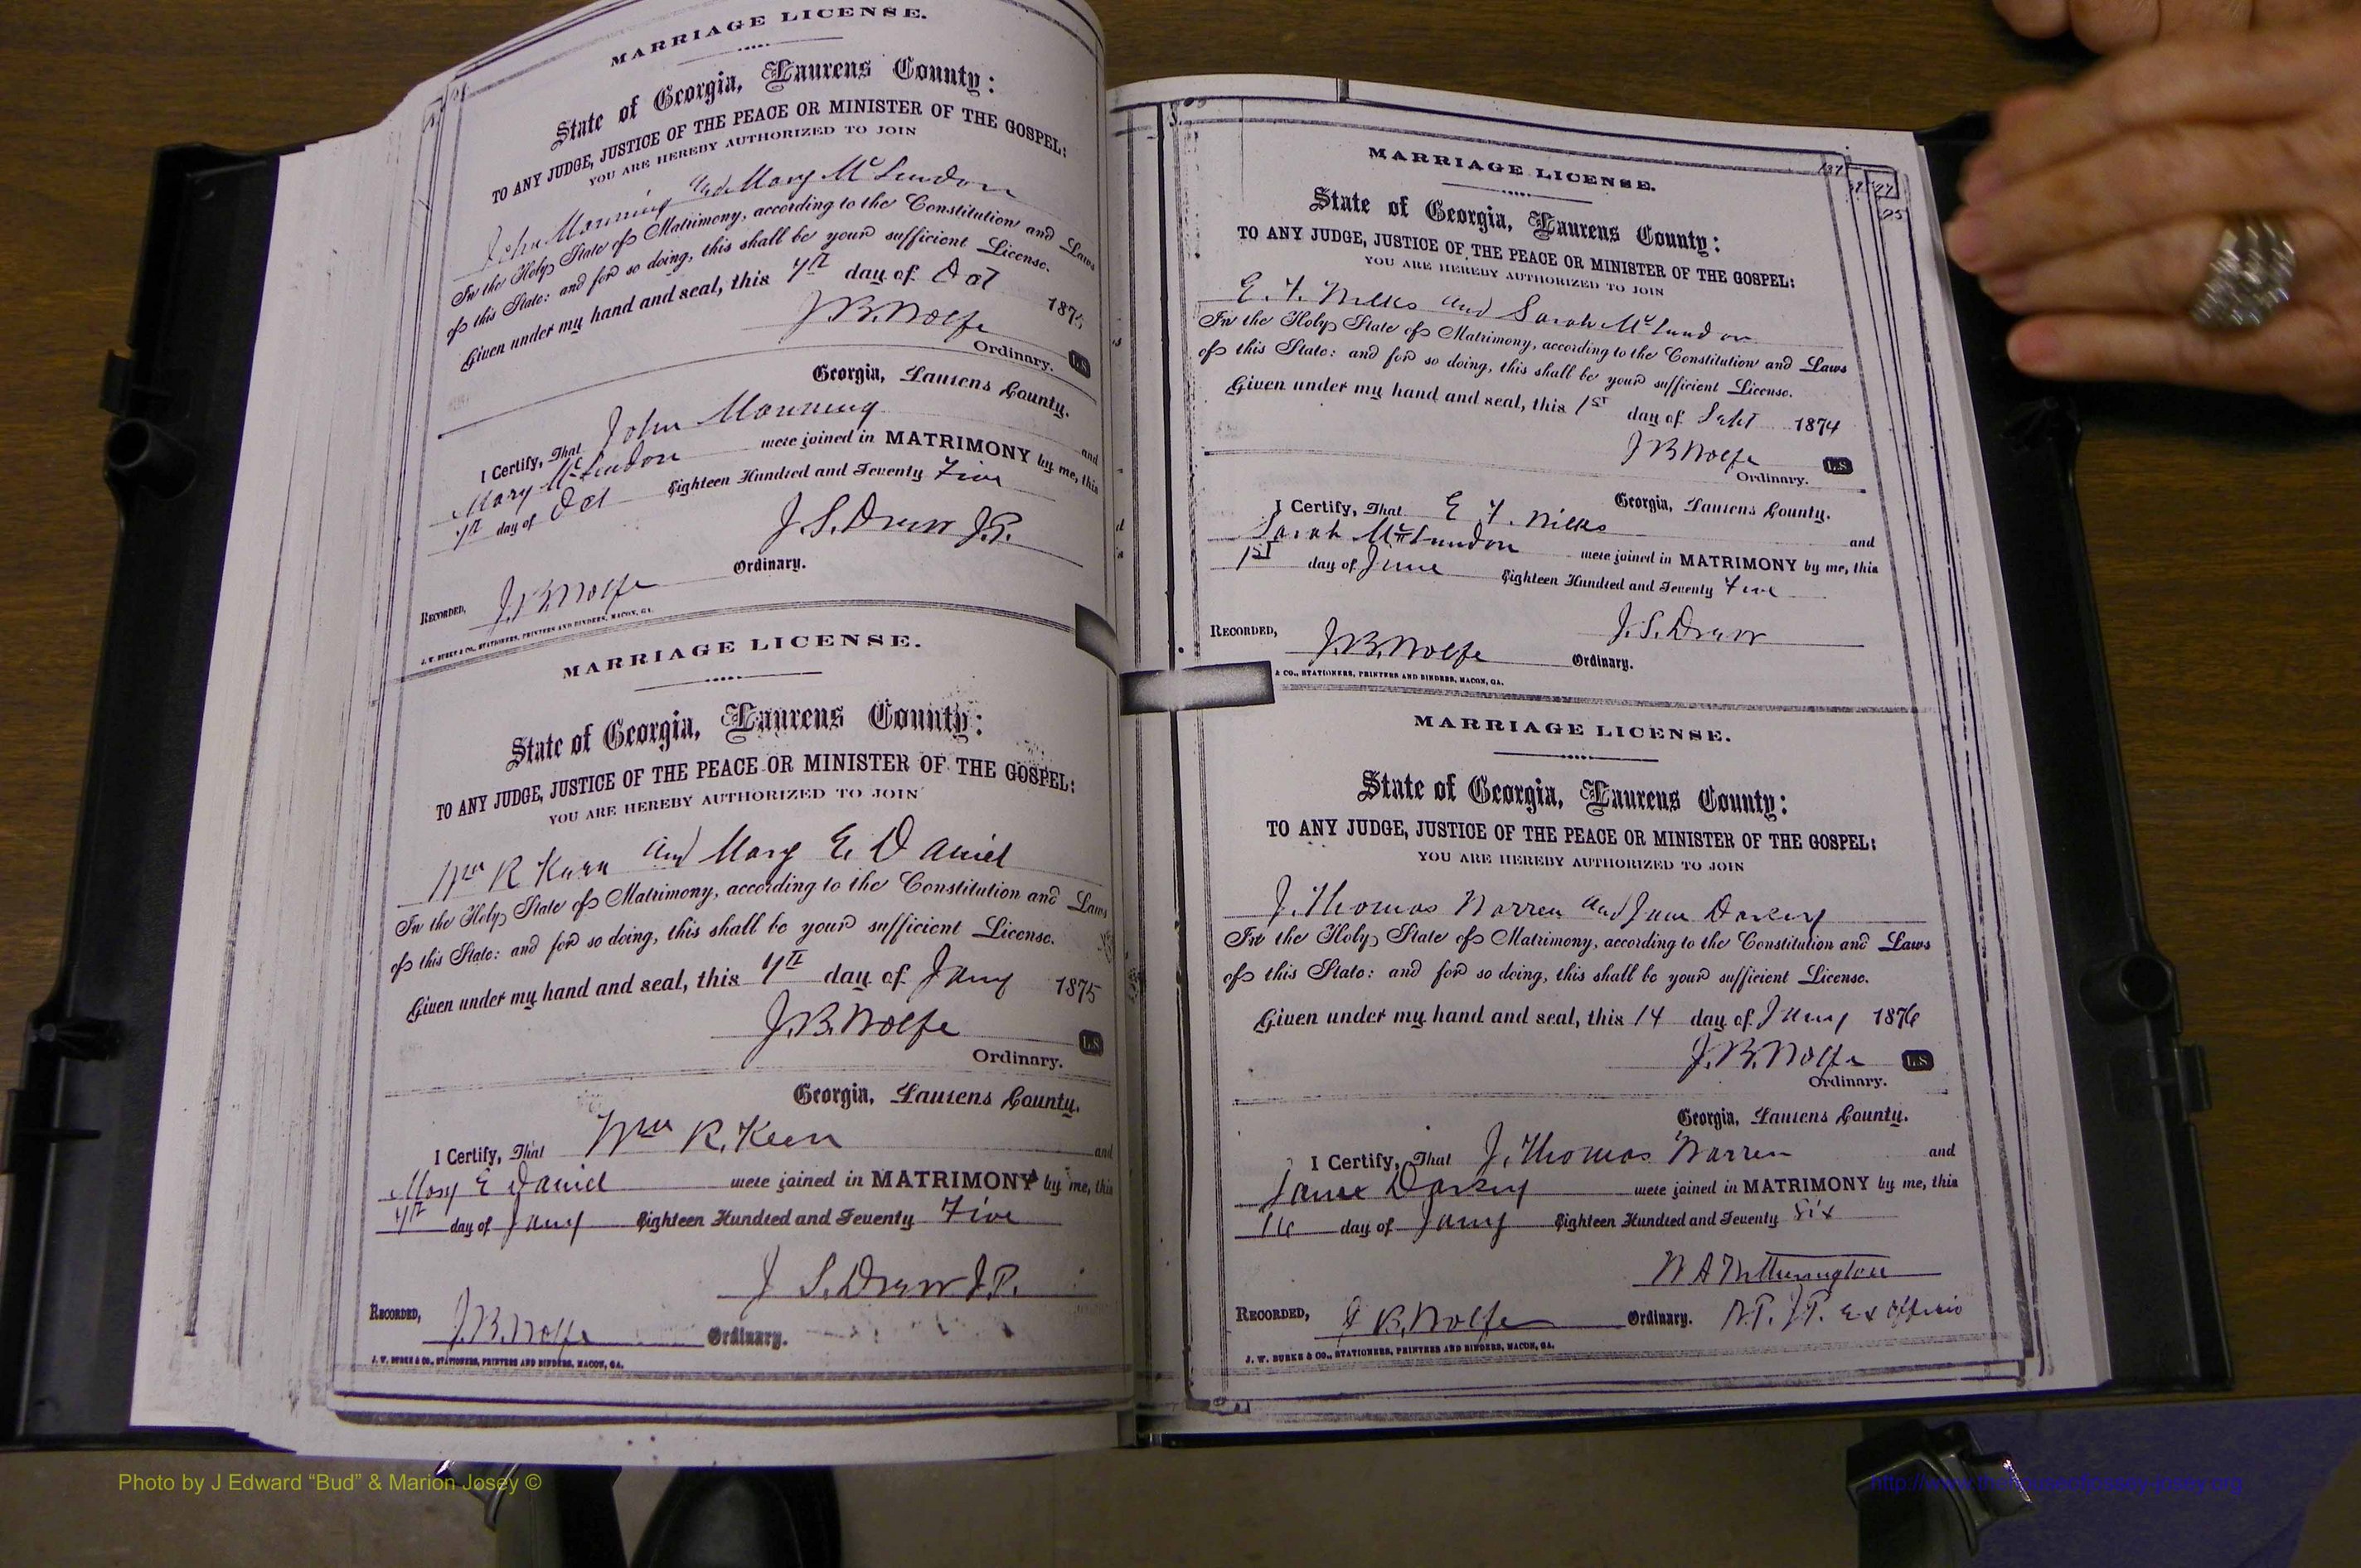 MARRIAGE LICENSE.
State of Georgia, Laurens County:
TO ANY JUDGE, JUSTICE OF THE PEACE OR MINISTER OF THE GOSPEL:
YOU ARE HEREBY AUTHORIZED TO JOIN
John Manning and Mary McLendon
In the Holy State of Matrimony, according to the Constitution and Laws
of this State: and for so doing, this shall be your sufficient License.
Given under my hand and seal, this 7th day of Oct 1875
J.B. Wolfe
Ordinary. L.S.
Georgia, Laurens County.
I Certify, That John Manning and
Mary McLendon were joined in MATRIMONY by me, this
7th day of Oct Eighteen Hundred and Seventy Five
J.S. Drew J.P.
RECORDED, J.B. Wolfe Ordinary.
J. W. BURKE & CO., STATIONERS, PRINTERS AND BINDERS, MACON, GA.
MARRIAGE LICENSE.
State of Georgia, Laurens County:
TO ANY JUDGE, JUSTICE OF THE PEACE OR MINISTER OF THE GOSPEL:
YOU ARE HEREBY AUTHORIZED TO JOIN
Wm R Keen and Mary E Daniel
In the Holy State of Matrimony, according to the Constitution and Laws
of this State: and for so doing, this shall be your sufficient License.
Given under my hand and seal, this 7th day of Jany 1875
J.B. Wolfe
L.S.
Ordinary.
Georgia, Laurens County.
I Certify, That Wm R. Keen and
Mary E Daniel were joined in MATRIMONY by me, this
7th day of Jany Eighteen Hundred and Seventy Five
J S. Drew J.P.
RECORDED, J.B. Wolfe Ordinary.
J. W. BURKE & CO., STATIONERS, PRINTERS AND BINDERS, MACON, GA.
MARRIAGE LICENSE.
State of Georgia, Laurens County:
TO ANY JUDGE, JUSTICE OF THE PEACE OR MINISTER OF THE GOSPEL:
YOU ARE HEREBY AUTHORIZED TO JOIN
E. F. Wilks and Sarah McLendon
In the Holy State of Matrimony, according to the Constitution and Laws
of this State: and for so doing, this shall be your sufficient License.
Given under my hand and seal, this 1st day of Sept 1874
J B Wolfe L.S.
Ordinary.
Georgia, Laurens County.
I Certify, That E F. Wilks and
Sarah McLendon were joined in MATRIMONY by me, this
1st day of June Eighteen Hundred and Seventy Five
J.S. Drew
RECORDED, J.B. Wolfe Ordinary.
& CO., STATIONERS, PRINTERS AND BINDERS, MACON, GA.
MARRIAGE LICENSE.
State of Georgia, Laurens County:
TO ANY JUDGE, JUSTICE OF THE PEACE OR MINISTER OF THE GOSPEL:
YOU ARE HEREBY AUTHORIZED TO JOIN
J. Thomas Warren and Jane Darsey
In the Holy State of Matrimony, according to the Constitution and Laws
of this State: and for so doing, this shall be your sufficient License.
Given under my hand and seal, this 14 day of Jany 1876
J.B. Wolfe L.S.
Ordinary.
Georgia, Laurens County.
I Certify, That J. Thomas Warren and
Jane Darsey were joined in MATRIMONY by me, this
16 day of Jany Eighteen Hundred and Seventy Six
W A Witherington
RECORDED, J B. Wolfe Ordinary. N.P. J.P. Ex Officio
J. W. BURKE & CO., STATIONERS, PRINTERS AND BINDERS, MACON, GA.
Photo by J Edward “Bud” & Marion Josey ©